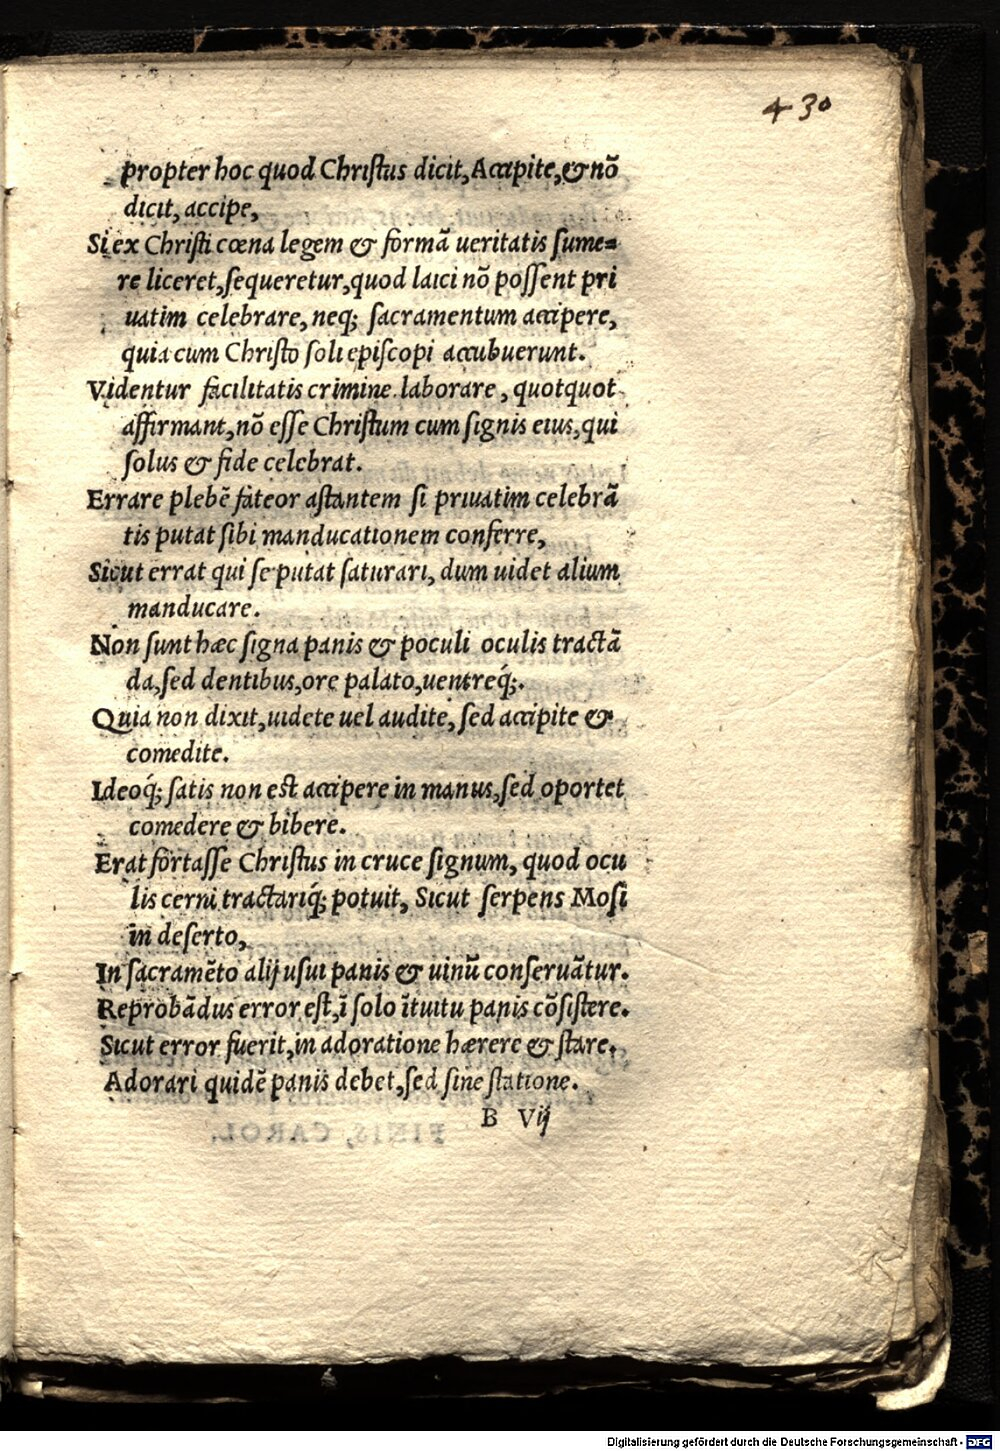 430
propter hoc quod Christus dicit, Accipite, & nõ
dicit, accipe,
Si ex Christi cœna legem & formã ueritatis sume=
re liceret, sequeretur, quod laici nõ possent pri
uatim celebrare, neq; sacramentum accipere,
quia cum Christo soli episcopi accubuerunt.
Videntur facilitatis crimine laborare, quotquot
affirmant, nõ esse Christum cum signis eius, qui
solus & fide celebrat.
Errare plebẽ fateor astantem si priuatim celebrã
tis putat sibi manducationem conferre,
Sicut errat qui se putat saturari, dum uidet alium
manducare.
Non sunt hæc signa panis & poculi oculis tractã
da, sed dentibus, ore palato, uentreq́;.
Quia non dixit, uidete uel audite, sed accipite &
comedite.
Ideoq́; satis non est accipere in manus, sed oportet
comedere & bibere.
Erat fortasse Christus in cruce signum, quod ocu
lis cerni tractariq́; potuit, Sicut serpens Mosi
in deserto,
In sacramẽto alij usui panis & uinũ conseruãtur.
Reprobãdus error est, ĩ solo ĩtuitu panis cõsistere.
Sicut error fuerit, in adoratione hærere & stare,
Adorari quidẽ panis debet, sed sine statione.
B Vij
Digitalisierung gefördert durch die Deutsche Forschungsgemeinschaft - DFG